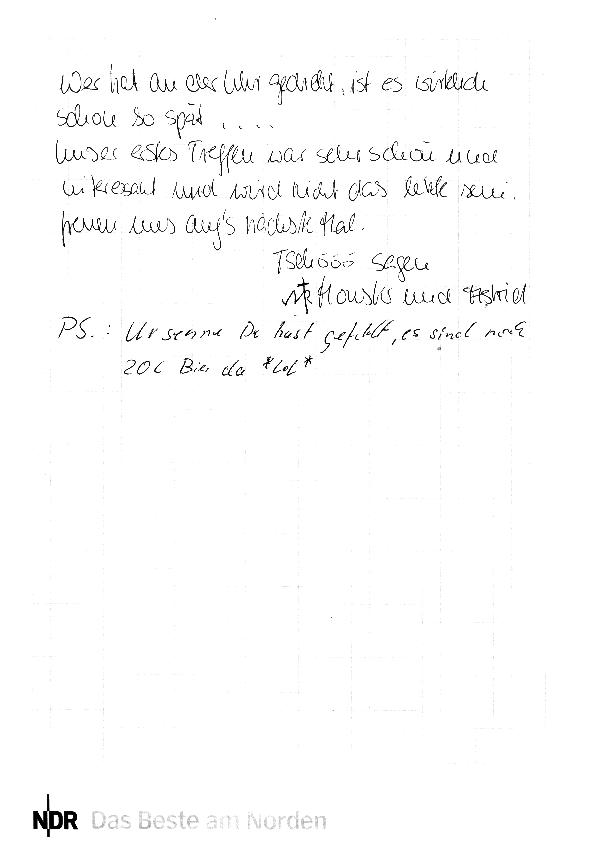 Wer hat an der Uhr gedreht, ist es wirklich
schon so spät ....
Unser erstes Treffen war sehr schön und
interessant und wird nicht das letzte sein.
freuen uns auf's nächste Mal.
Tschööö sagen
und Astrid
PS.: Ursenna Du hast gefehlt, es sind noch
20l Bier da *lol*
NDR Das Beste am Norden